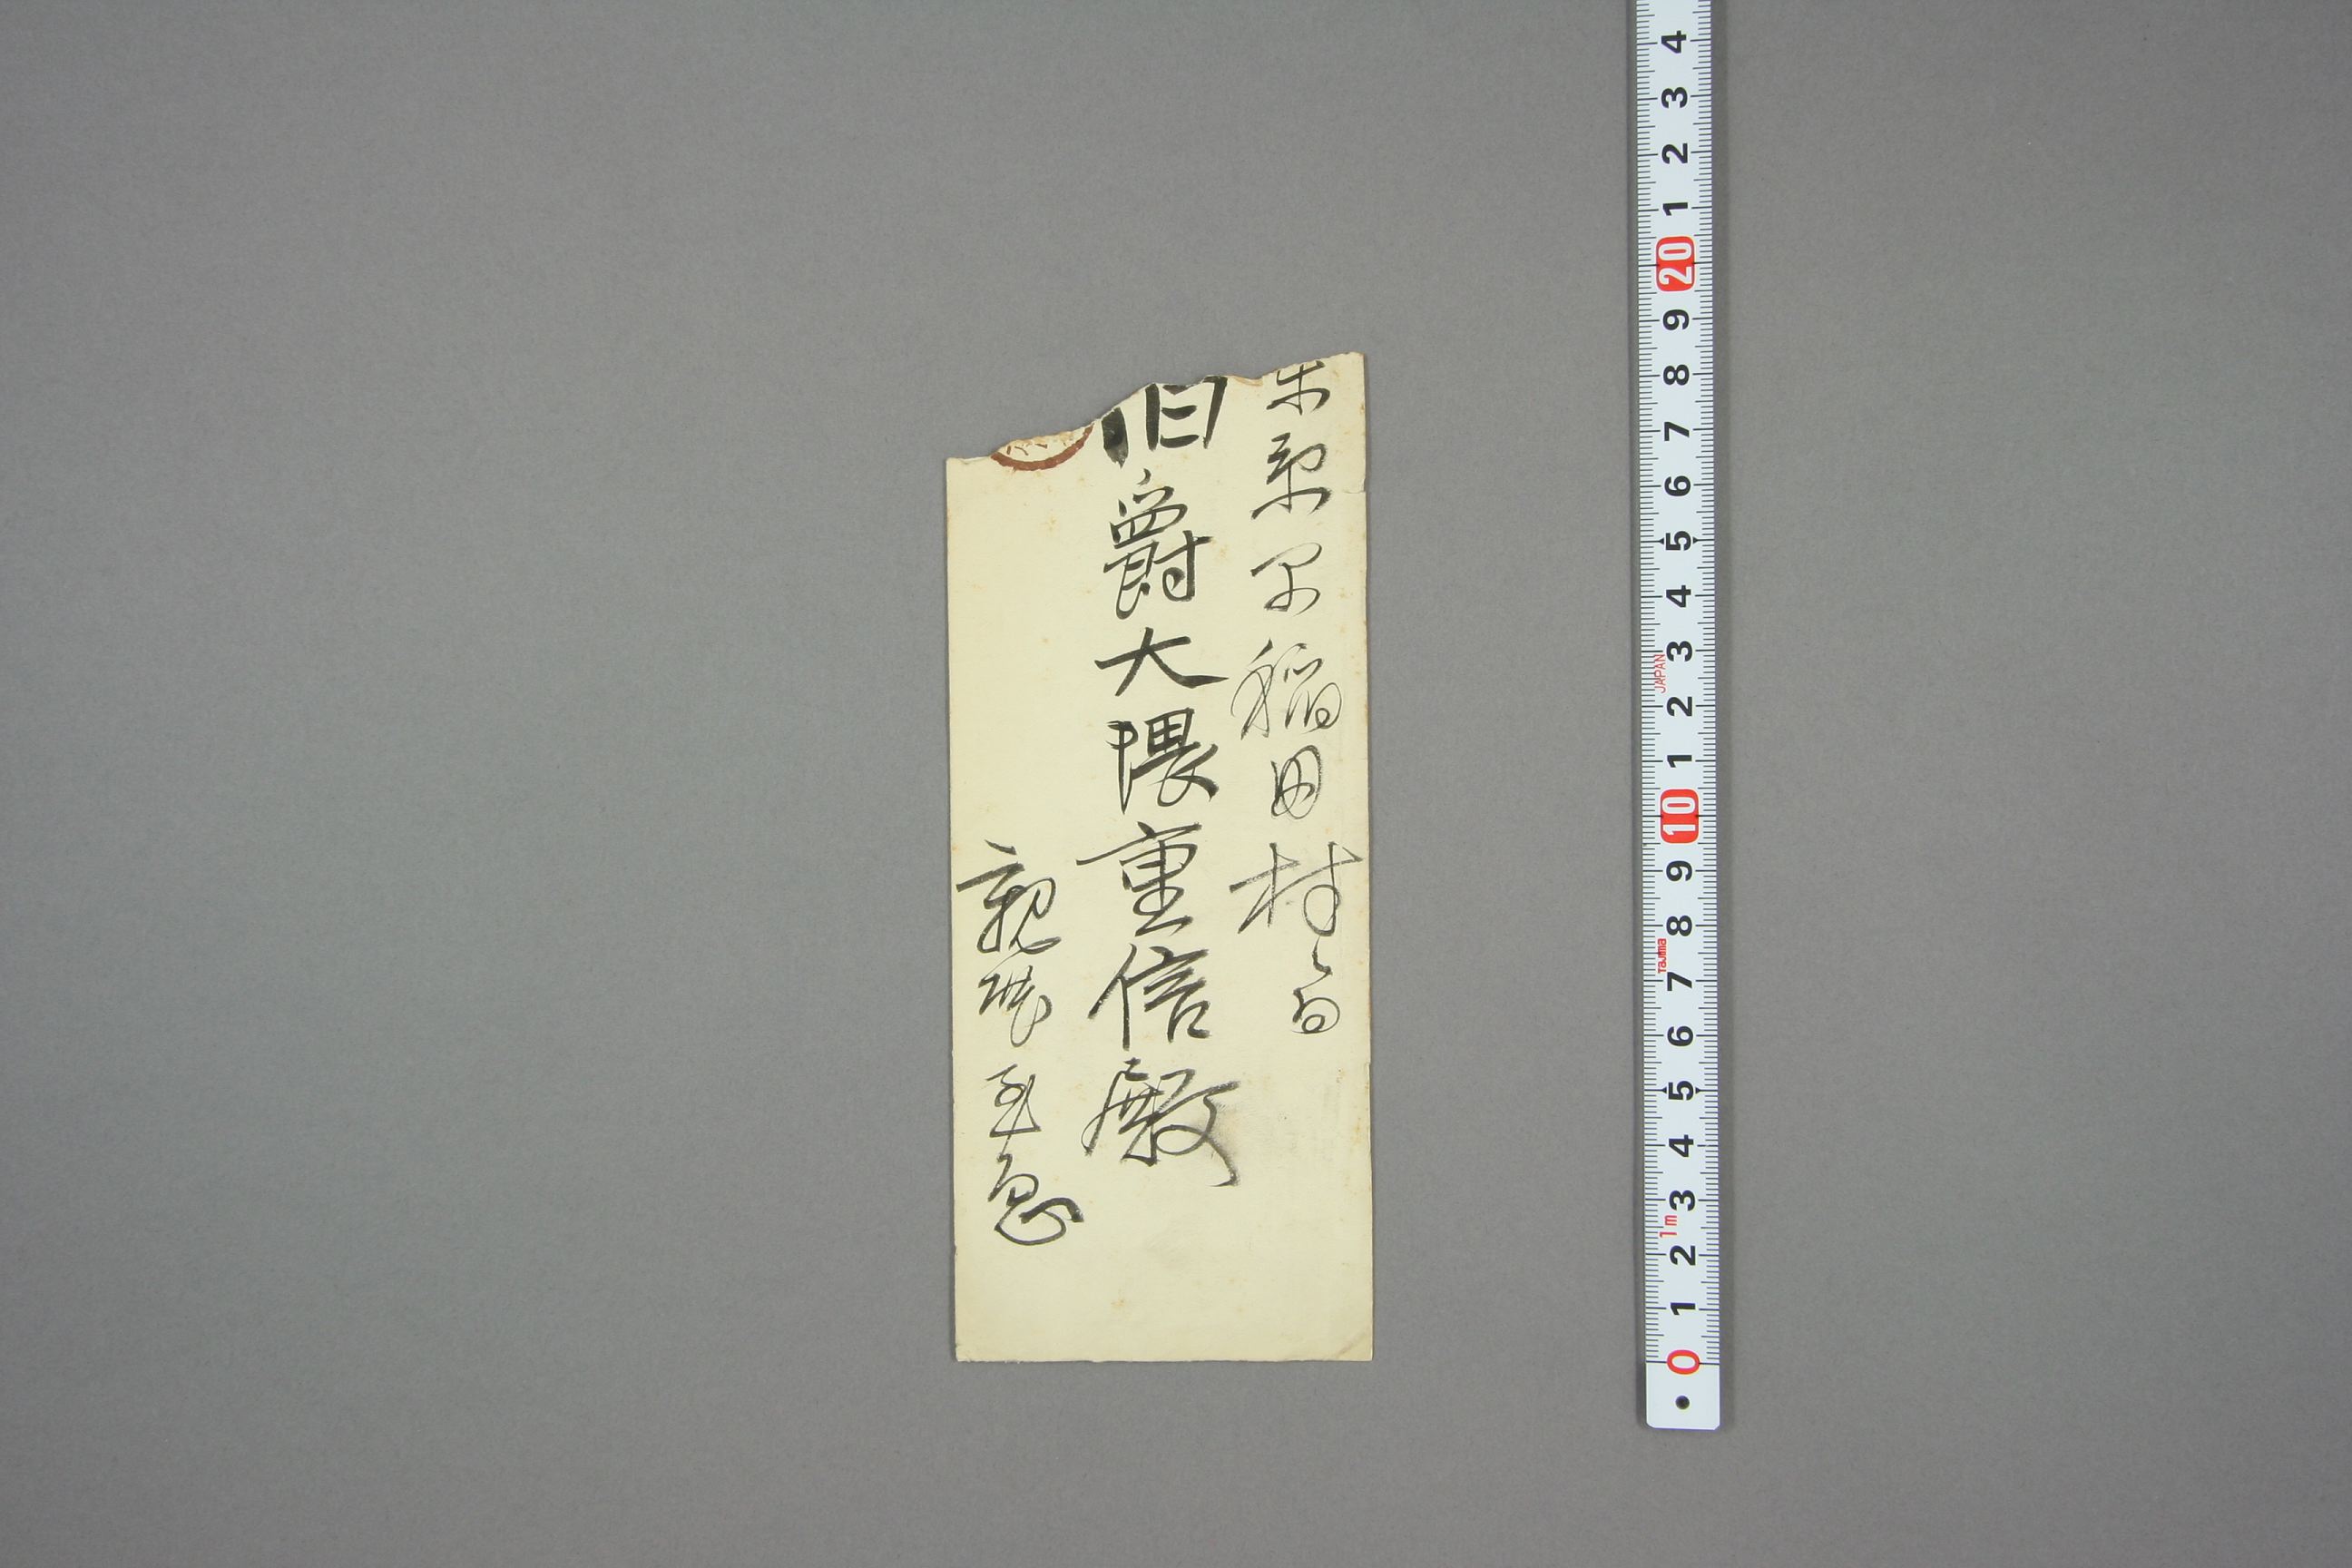 東京早稲田村ニ而
伯爵大隈重信殿
親展至急
4
3
2
1
20
9
8
7
6
5
4
3
JAPAN
2
1
10
9
8
Tajima
7
6
5
4
3
1m
2
1
0